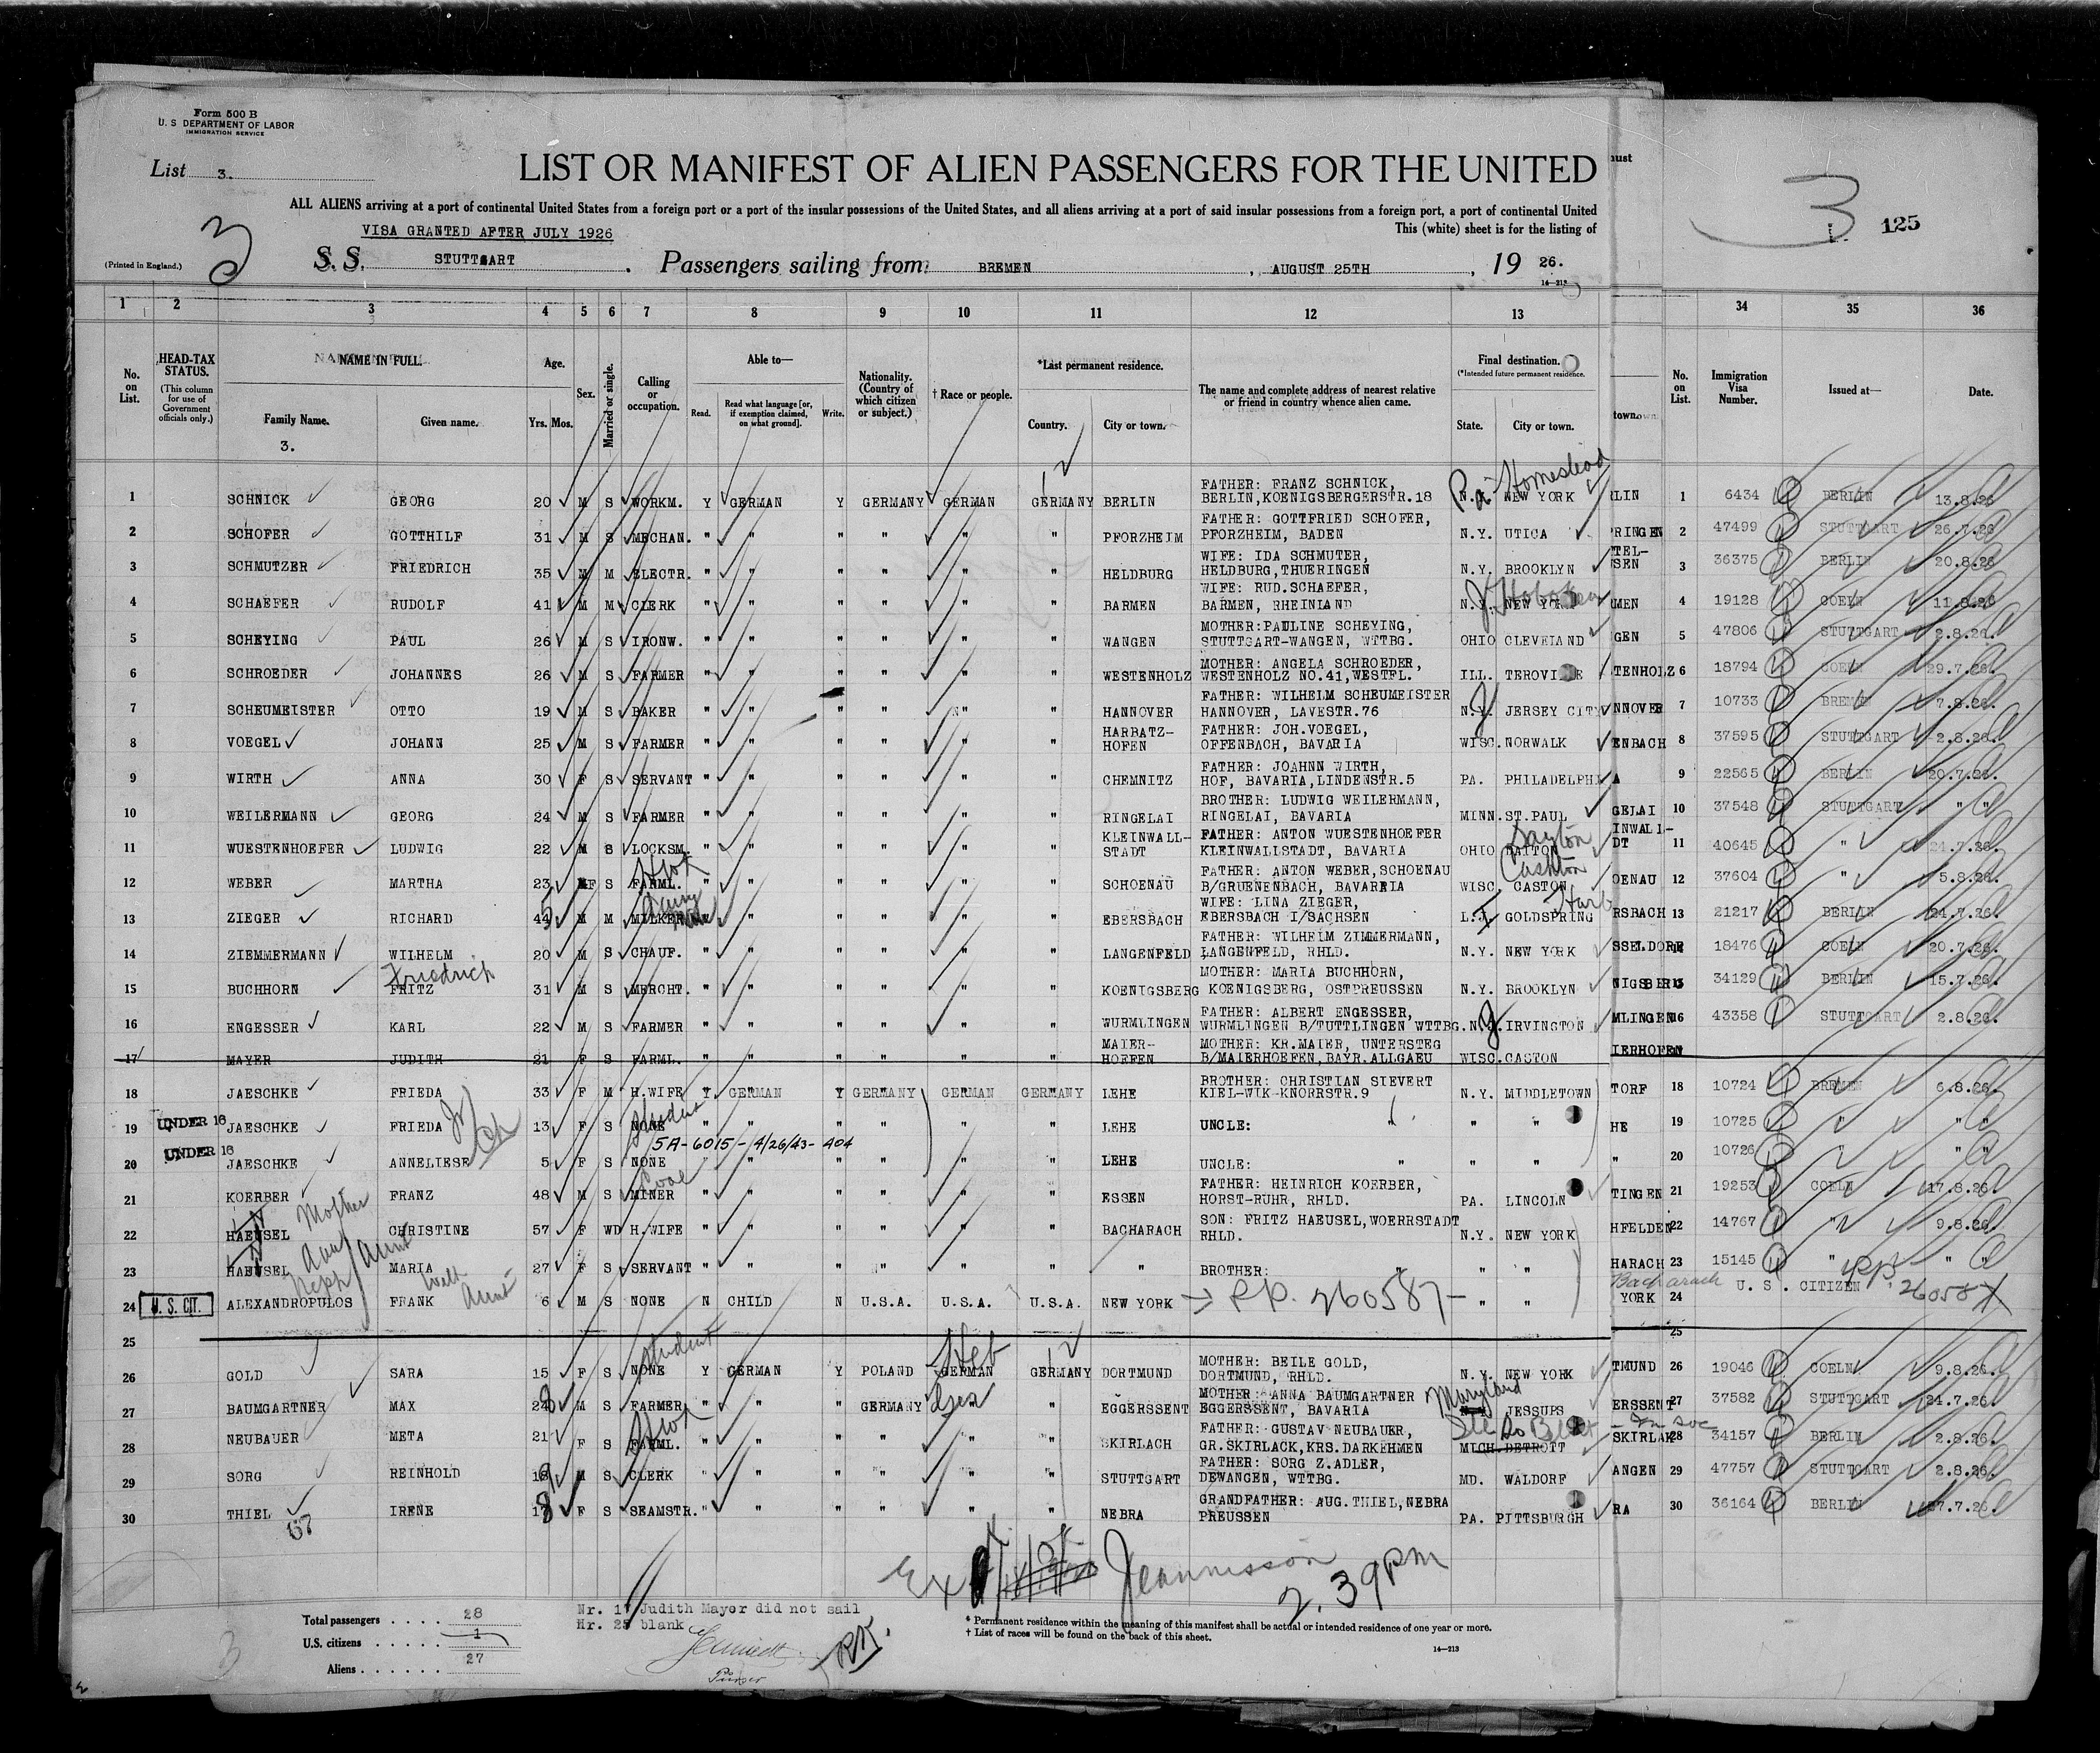 Form 500 B
U. S. DEPARTMENT OF LABOR
IMMIGRATION SERVICE
List 3.
LIST OR MANIFEST OF ALIEN PASSENGERS FOR THE UNITED
ALL ALIENS arriving at a port of continental United States from a foreign port or a port of the insular possessions of the United States, and all aliens arriving at a port of said insular possessions from a foreign port, a port of continental United
VISA GRANTED AFTER JULY 1926
This (white) sheet is for the listing of
3
3
125
(Printed in England.)
S. S. STUTTGART . Passengers sailing from: BREMEN , AUGUST 25TH , 19 26.
14—213
1 2 3 4 5 6 7 8 9 10 11 12 13 34 35 36
No. on List.
HEAD-TAX STATUS.
(This column for use of Government officials only.)
NAME IN FULL.
Family Name. Given name.
3.
Age.
Yrs. Mos.
Sex.
Married or single.
Calling or occupation.
Able to—
Read. Read what language [or, if exemption claimed, on what ground]. Write.
Nationality. (Country of which citizen or subject.)
† Race or people.
*Last permanent residence.
Country. City or town.
The name and complete address of nearest relative or friend in country whence alien came.
Final destination.
(*Intended future permanent residence.
State. City or town.
town.
No. on List.
Immigration Visa Number.
Issued at—
Date.
1 SCHNICK GEORG 20 M S WORKM. Y GERMAN Y GERMANY GERMAN GERMANY BERLIN FATHER: FRANZ SCHNICK, BERLIN,KOENIGSBERGERSTR.18 N.Y. NEW YORK Pa Homestead RLIN 1 6434 BERLIN 13.8.26
2 SCHOFER GOTTHILF 31 M S MECHAN. " " " " " " PFORZHEIM FATHER: GOTTFRIED SCHOFER, PFORZHEIM, BADEN N.Y. UTICA PRINGEN 2 47499 STUTTGART 26.7.26
3 SCHMUTZER FRIEDRICH 35 M M ELECTR. " " " " " " HELDBURG WIFE: IDA SCHMUTER, HELDBURG,THUERINGEN N.Y. BROOKLYN TEL-SEN 3 36375 BERLIN 20.8.26
4 SCHAEFER RUDOLF 41 M M CLERK " " " " " " BARMEN WIFE: RUD.SCHAEFER, BARMEN, RHEINLAND N.Y. NEW YORK J Hoboken MEN 4 19128 COELN 11.8.26
5 SCHEYING PAUL 26 M S IRONW. " " " " " " WANGEN MOTHER:PAULINE SCHEYING, STUTTGART-WANGEN, WTTBG. OHIO CLEVELAND GEN 5 47806 STUTTGART 2.8.26.
6 SCHROEDER JOHANNES 26 M S FARMER " " " " " " WESTENHOLZ MOTHER: ANGELA SCHROEDER, WESTENHOLZ NO.41,WESTFL. ILL. TENHOLZ 6 18794 COELN 29.7.26.
7 SCHEUMEISTER OTTO 19 M S BAKER " " " " " " HANNOVER FATHER: WILHELM SCHEUMEISTER HANNOVER, LAVESTR.76 N.Y. J JERSEY CITY NNOVER 7 10733 BREMEN 7.8.26.
8 VOEGEL JOHANN 25 M S FARMER " " " " " " HARBATZ-HOFEN FATHER: JOH.VOEGEL, OFFENBACH, BAVARIA WISC. NORWALK ENBACH 8 37595 STUTTGART 2.8.26.
9 WIRTH ANNA 30 F S SERVANT " " " " " " CHEMNITZ FATHER: JOAHNN WIRTH, HOF, BAVARIA,LINDENSTR.5 PA. PHILADELPHIA 9 22565 BERLIN 20.7.26.
10 WEILERMANN GEORG 24 M S FARMER " " " " " " RINGELAI BROTHER: LUDWIG WEILERMANN, RINGELAI, BAVARIA MINN. ST.PAUL GELAI 10 37548 STUTTGART " "
11 WUESTENHOEFER LUDWIG 22 M S LOCKSM. " " " " " " KLEINWALL-STADT FATHER: ANTON WUESTENHOEFER KLEINWALLSTADT, BAVARIA OHIO DAITON Dayton INWALL-DT 11 40645 " 24.7.26.
12 WEBER MARTHA 23 MF S FARML. Hwk " " " " " " SCHOENAU FATHER: ANTON WEBER,SCHOENAU B/GRUENENBACH, BAVARRIA WISC. CASTON Cashton OENAU 12 37604 " 5.8.26.
13 ZIEGER RICHARD 44 M M MILKER Dairy " " " " " " EBERSBACH WIFE: LINA ZIEGER, EBERSBACH I/SACHSEN L.I. GOLDSPRING Harb RSBACH 13 21217 BERLIN 24.7.26.
14 ZIEMMERMANN WILHELM 20 M S CHAUF. " " " " " " LANGENFELD FATHER: WILHELM ZIMMERMANN, LANGENFELD, RHLD. N.Y. NEW YORK SSELDORF 14 18476 COELN 20.7.26.
15 BUCHHORN FRITZ Friedrich 31 M S MERCHT. " " " " " " KOENIGSBERG MOTHER: MARIA BUCHHORN, KOENIGSBERG, OSTPREUSSEN N.Y. BROOKLYN NIGSBERG 15 34129 BERLIN 15.7.26.
16 ENGESSER KARL 22 M S FARMER " " " " " " WURMLINGEN FATHER: ALBERT ENGESSER, WURMLINGEN B/TUTTLINGEN WTTBG. N.J. IRVINGTON MLINGEN 16 43358 STUTTGART 2.8.26.
17 MAYER JUDITH 21 F S FARML. " " " " " " MAIER-HOEFEN MOTHER: KR.MAIER, UNTERSTEG B/MAIERHOEFEN,BAYR.ALLGAEU WISC. CASTON IERHOFEN
18 JAESCHKE FRIEDA 33 F M H.WIFE Y GERMAN Y GERMANY GERMAN GERMANY LEHE BROTHER: CHRISTIAN SIEVERT KIEL-WIK-KNORRSTR.9 N.Y. MIDDLETOWN TORF 18 10724 BREMEN 6.8.26.
19 UNDER 16 JAESCHKE FRIEDA 13 F S NONE Student " " " " " " LEHE UNCLE: " " " HE 19 10725 " " "
5A-6015-4/26/43-404
20 UNDER 16 JAESCHKE ANNELIESE 5 F S NONE " " " " " " LEHE UNCLE: " " " " 20 10726 " " "
21 KOERBER FRANZ 48 M S MINER Coal " " " " " " ESSEN FATHER: HEINRICH KOERBER, HORST-RUHR, RHLD. PA. LINCOLN TINGEN 21 19253 COELN 17.8.26.
22 HAEUSEL Mother CHRISTINE 57 F WD H.WIFE " " " " " " BACHARACH SON: FRITZ HAEUSEL,WOERRSTADT RHLD. N.Y. NEW YORK HFELDEN 22 14767 " 9.8.26.
23 HAEUSEL Aunt MARIA 27 F S SERVANT " " " " " " " BROTHER: " " " HARACH 23 15145 " " "
Neph with Aunt
Bacharach
24 U. S. CIT. ALEXANDROPULOS FRANK 6 M S NONE N CHILD N U.S.A. U.S.A. U.S.A. NEW YORK P.P. 260587 " " YORK 24 U. S. CITIZEN PP. 260587
25 25
26 GOLD SARA 15 F S NONE student Y GERMAN Y POLAND GERMAN Heb GERMANY DORTMUND MOTHER: BEILE GOLD, DORTMUND, RHLD. N.Y. NEW YORK TMUND 26 19046 COELN 9.8.26.
27 BAUMGARTNER MAX 24 M S FARMER " " " GERMANY Ger " EGGERSSENT MOTHER: ANNA BAUMGARTNER EGGERSSENT, BAVARIA Maryland JESSUPS ERSSENT 27 37582 STUTTGART 24.7.26.
28 NEUBAUER META 21 F S FARML. Hwk " " " " " " SKIRLACH FATHER: GUSTAV NEUBAUER, GR.SKIRLACK,KRS.DARKEHMEN MICH. DETROTT SKIRLAK 28 34157 BERLIN 2.8.26.
29 SORG REINHOLD 18 M S CLERK " " " " " " STUTTGART FATHER: SORG Z.ADLER, DEWANGEN, WTTBG. MD. WALDORF ANGEN 29 47757 STUTTGART 2.8.26.
30 THIEL IRENE 17 8 F S SEAMSTR. " " " " " " NEBRA GRANDFATHER: AUG.THIEL,NEBRA PREUSSEN PA. PITTSBURGH RA 30 36164 BERLIN 27.7.26.
67
Jeannisson
2.39 pm
Total passengers . . . . 28
U.S. citizens . . . . . 1
Aliens . . . . . . 27
Nr. 17 Judith Mayer did not sail
Nr. 25 blank
Purser
* Permanent residence within the meaning of this manifest shall be actual or intended residence of one year or more.
† List of races will be found on the back of this sheet.
14—213
3